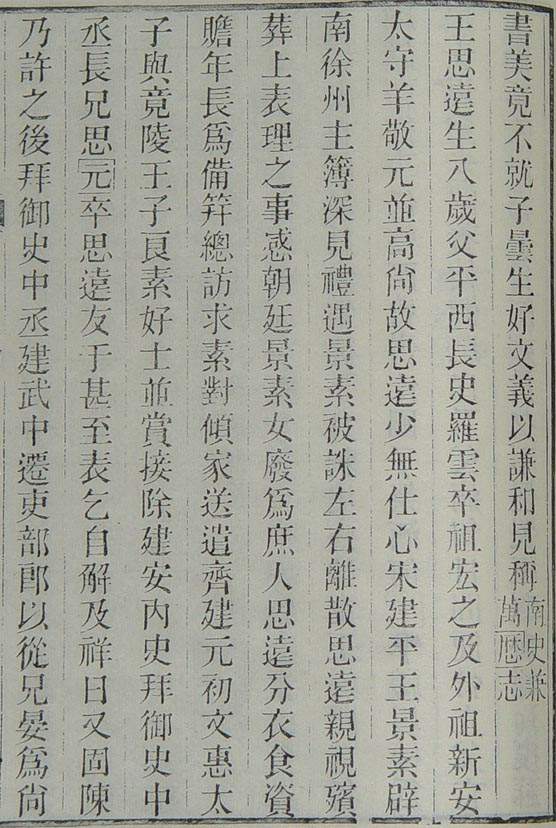 書美竟不就子曇生好文義以謙和見稱南史兼萬曆志
王思遠生八歲父平西長史羅雲卒祖宏之及外祖新安
太守羊敬元並高尙故思遠少無仕心宋建平王景素辟
南徐州主簿深見禮遇景素被誅左右離散思遠親視殯
葬上表理之事感朝廷景素女廢爲庶人思遠分衣食資
贍年長爲備筓總訪求素對傾家送遣齊建元初文惠太
子與竟陵王子良素好士並賞接除建安內史拜御史中
丞長兄思元卒思遠友于甚至表乞自解及祥日又固陳
乃許之後拜御史中丞建武中遷吏部郎以從兄晏爲尙